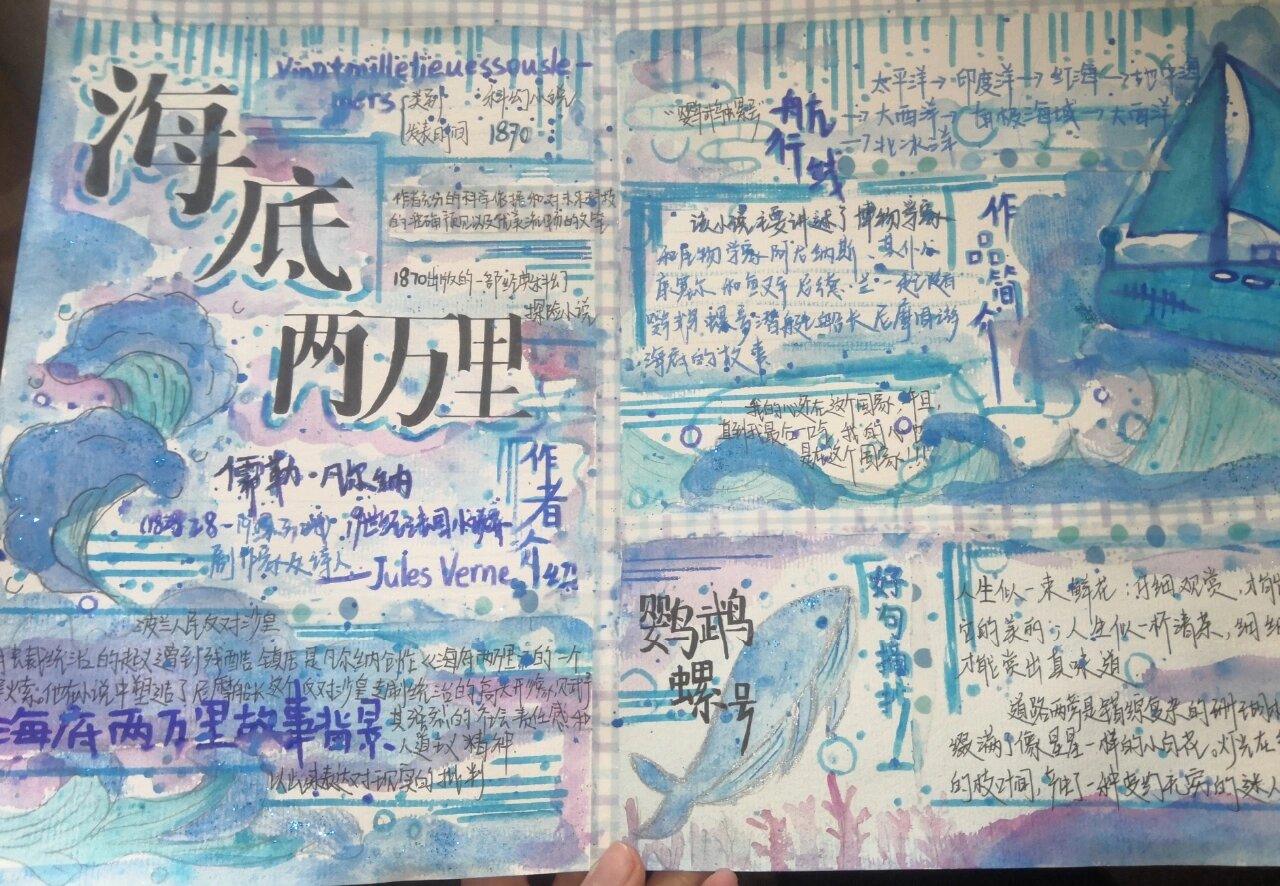 海底两万里
Vingtmillelieuessousle-
mers
类别 科幻小说
发表时间 1870
作者充分的科学依据和对未来科技
的准确预见以及优美流畅的文笔
1870出版的一部经典科幻
探险小说
作者介绍
儒勒·凡尔纳
19世纪法国小说家
剧作家及诗人
Jules Verne
波兰人民反对沙皇
统治的起义遭到残酷镇压是凡尔纳创作《海底两万里》的一个
他在小说中塑造了尼摩船长这个反对沙皇专制统治的高大形象
其强烈的社会责任感和
人道主义精神
以此来表达对现实的批判
海底两万里故事背景
“鹦鹉螺号”
航行线
太平洋→印度洋→红海→地中海
→大西洋→南极海域→大西洋
→北冰洋
作品简介
该小说主要讲述了博物学家
和生物学家阿龙纳斯、其仆人
康塞尔和鱼叉手尼德·兰一起随
鹦鹉螺号潜艇船长尼摩周游
海底的故事
我的心永在这个国家,并且
直到我最后一口气,我的心也
是在这个国家!!!
鹦鹉螺号
好句摘抄
人生似一束鲜花:仔细观赏,才能
它的美丽;人生似一杯清茶,细细
才能赏出真味道
道路两旁是错综复杂的
缀满了像星星一样的小白花。灯光在
的枝叶间,